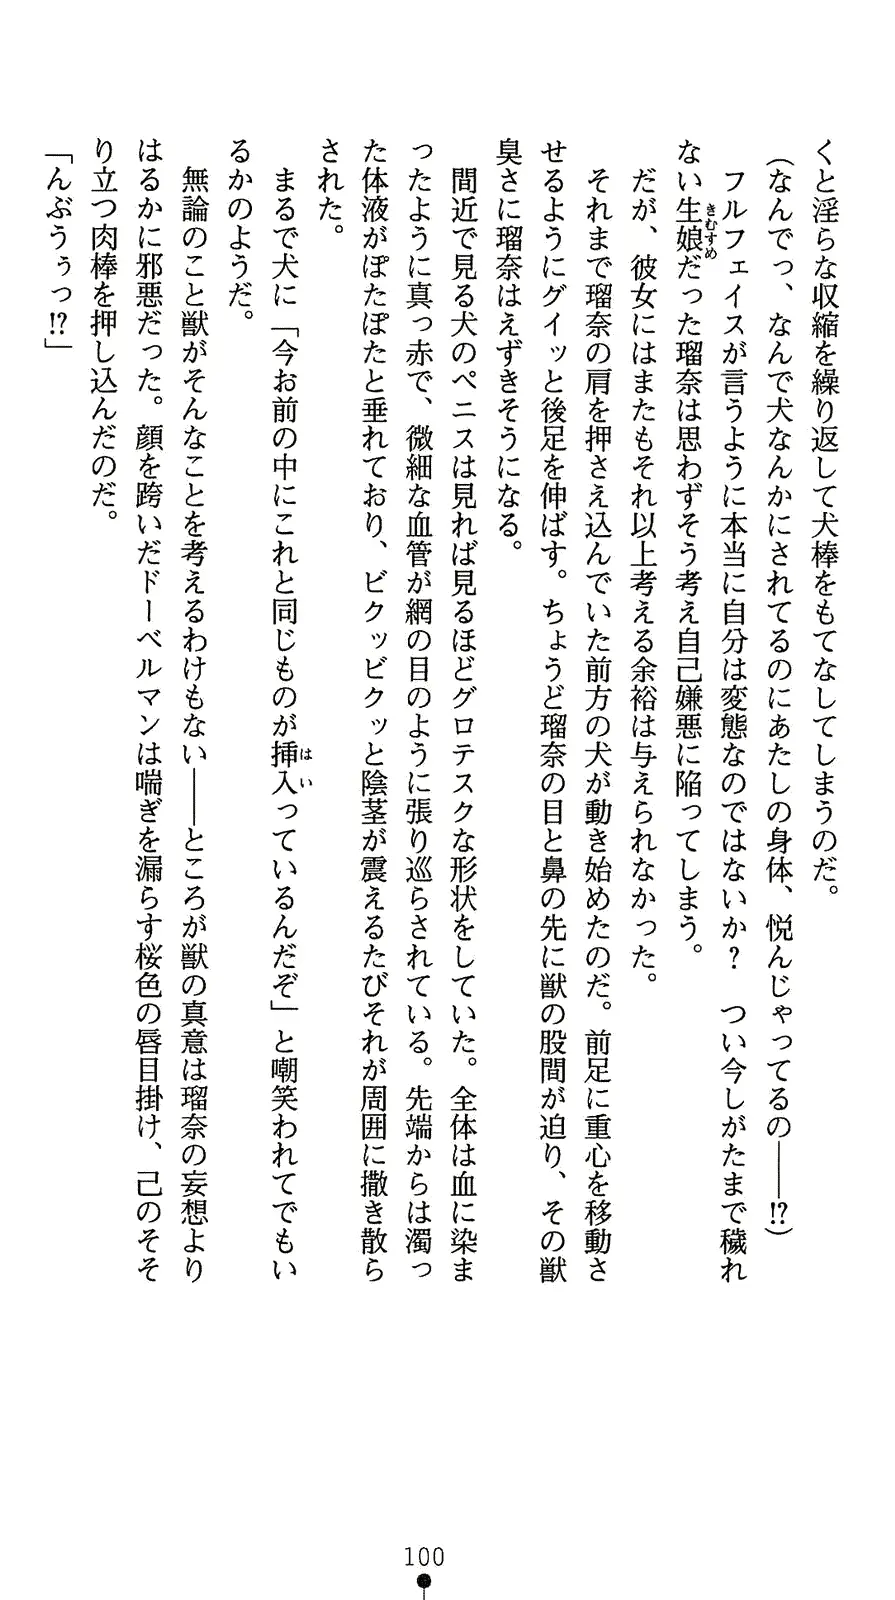 くと淫らな収縮を繰り返して犬棒をもてなしてしまうのだ。
(なんでっ、なんで犬なんかにされてるのにあたしの身体、悦んじゃってるの――!?)
フルフェイスが言うように本当に自分は変態なのではないか？　つい今しがたまで穢れ
ない生娘だった瑠奈は思わずそう考え自己嫌悪に陥ってしまう。
きむすめ
だが、彼女にはまたもそれ以上考える余裕は与えられなかった。
それまで瑠奈の肩を押さえ込んでいた前方の犬が動き始めたのだ。前足に重心を移動さ
せるようにグイッと後足を伸ばす。ちょうど瑠奈の目と鼻の先に獣の股間が迫り、その獣
臭さに瑠奈はえずきそうになる。
間近で見る犬のペニスは見れば見るほどグロテスクな形状をしていた。全体は血に染ま
ったように真っ赤で、微細な血管が網の目のように張り巡らされている。先端からは濁っ
た体液がぽたぽたと垂れており、ビクッビクッと陰茎が震えるたびそれが周囲に撒き散ら
された。
まるで犬に「今お前の中にこれと同じものが挿入っているんだぞ」と嘲笑われてでもい
はい
るかのようだ。
無論のこと獣がそんなことを考えるわけもない――ところが獣の真意は瑠奈の妄想より
はるかに邪悪だった。顔を跨いだドーベルマンは喘ぎを漏らす桜色の唇目掛け、己のそそ
り立つ肉棒を押し込んだのだ。
「んぶうぅっ!?」
100